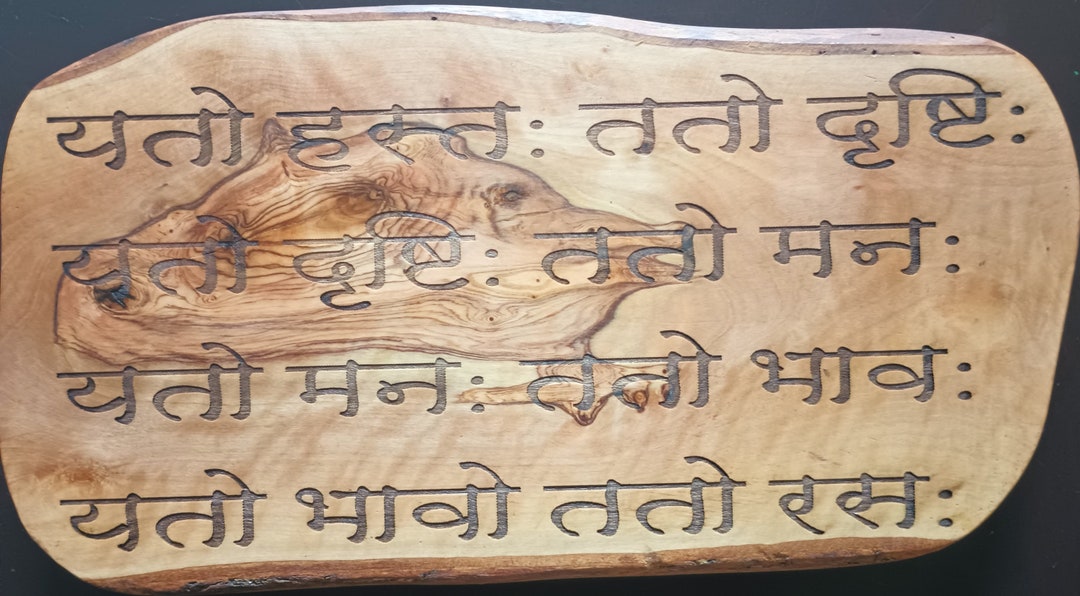 यतो हस्त: ततो दृष्टि:
यतो दृष्टि: ततो मन:
यतो मन: ततो भाव:
यतो भावो ततो रस: